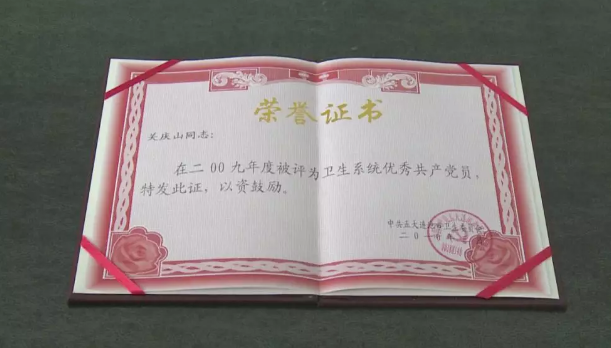 荣誉证书
关庆山同志：
在二00九年度被评为卫生系统优秀共产党员，
特发此证，以资鼓励。
中共五大连池市卫生
二0一0年